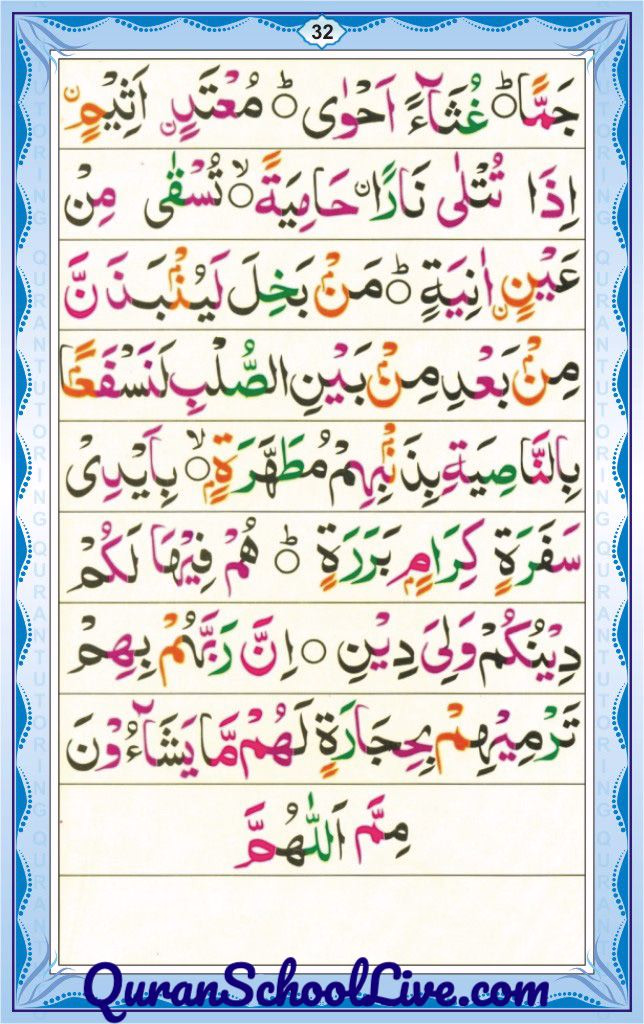 32
جَمًّا ؕ غُثَآءً اَحْوٰی ؕ مُعْتَدٍ اَثِيْمٍ
اِذَا تُتْلٰی نَارًا حَامِيَةً ۙ تُسْقٰی مِنْ
عَيْنٍ اٰنِيَةٍ ؕ مَنْۢ بَخِلَ لَيُنْۢبَذَنَّ
مِنْۢ بَعْدِ مِنْۢ بَيْنِ الصُّلْبِ لَنَسْفَعًۢا
بِالنَّاصِيَةِ بِذَنْۢبِهِمْ مُطَهَّرَةٍۭ ۙ بِاَيْدِیْ
سَفَرَةٍ كِرَامٍۭ بَرَرَةٍ ؕ هُمْ فِيْهَا لَكُمْ
دِيْنُكُمْ وَلِیَ دِيْنِ ○ اِنَّ رَبَّهُمْ بِهِمْ
تَرْمِيْهِمْ بِحِجَارَةٍ لَهُمْ مَّا يَشَآءُوْنَ
مِمَّ اَللّٰهُمَّ
QuranSchoolLive.com